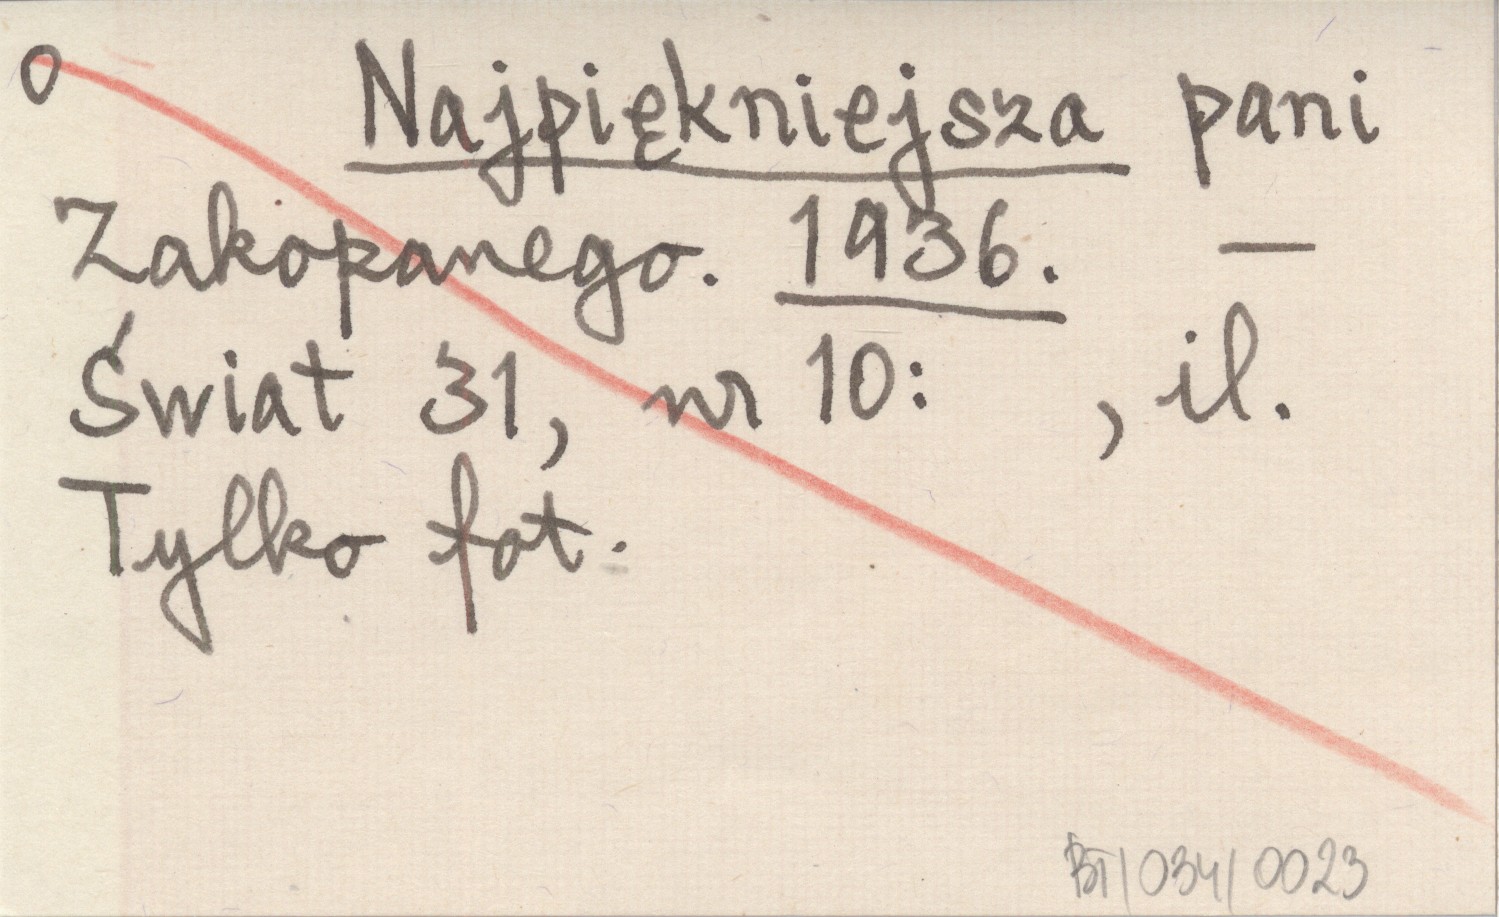 o Najpiękniejsza pani
Zakopanego. 1936. —
Świat 31, nr 10: , il.
Tylko fot.
BT/034/0023